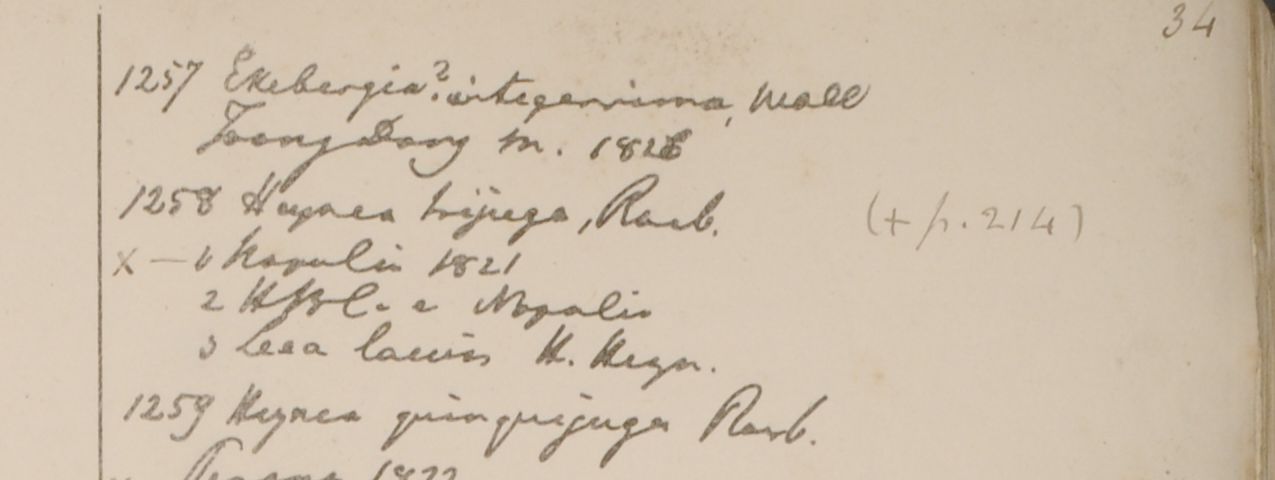 34
1257 Ekebergia? integerrima, Wall
Toong Dong m. 1826
1258 Heynea trijuga, Roxb. (+ p. 214)
x — 1 Napalia 1821
2 HBC. e Napalia
3 Leea laevis H. Heyn.
1259 Heynea quinquejuga Roxb.
1822